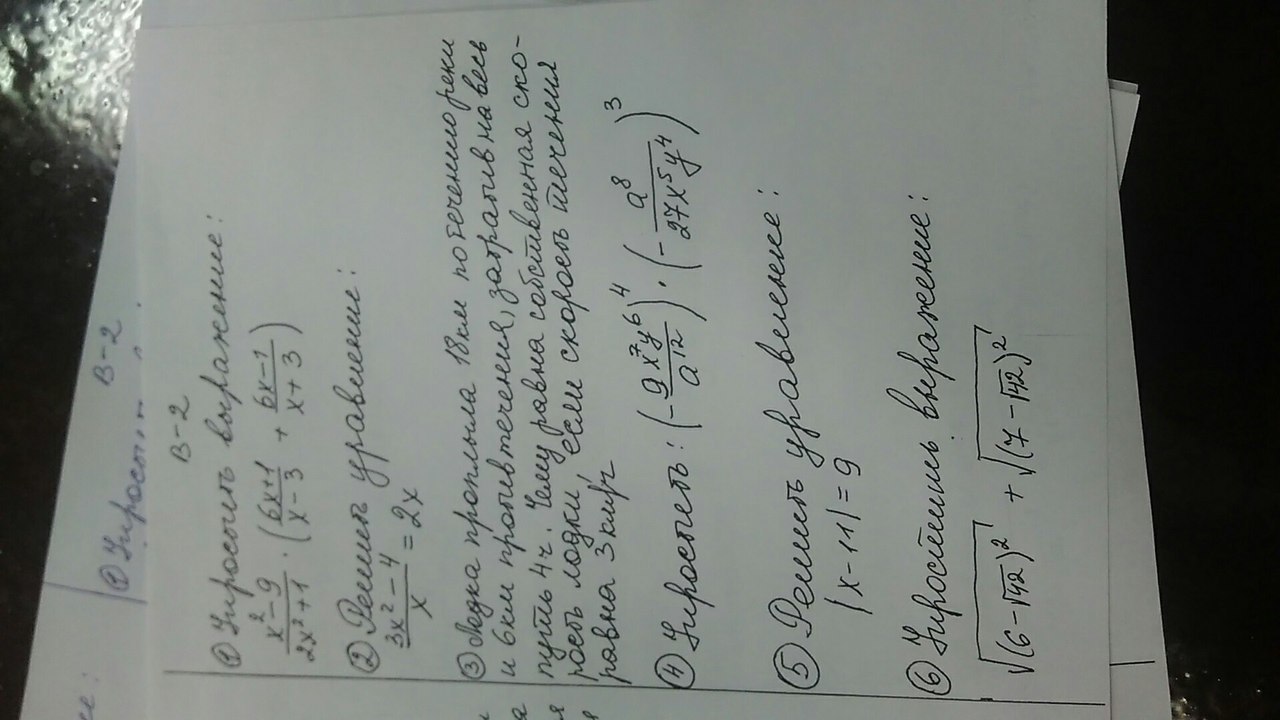 В-2
① Упростить выражение:
(x²-9)/(2x²+1) · ((6x+1)/(x-3) + (6x-1)/(x+3))
② Решить уравнение:
(3x²-4)/x = 2x
③ Лодка проплыла 18 км по течению реки
и 6 км против течения, затратив на весь
путь 4 ч. Чему равна собственная ско-
рость лодки, если скорость течения
равна 3 км/ч
④ Упростить: (-9x⁷y⁶/a¹²)⁴ · (-a⁸/(27x⁵y⁴))³
⑤ Решить уравнение:
|x-11|=9
⑥ Упростить выражение:
√(6-√42)² + √(7-√42)²
В-2
① Упростит
е: